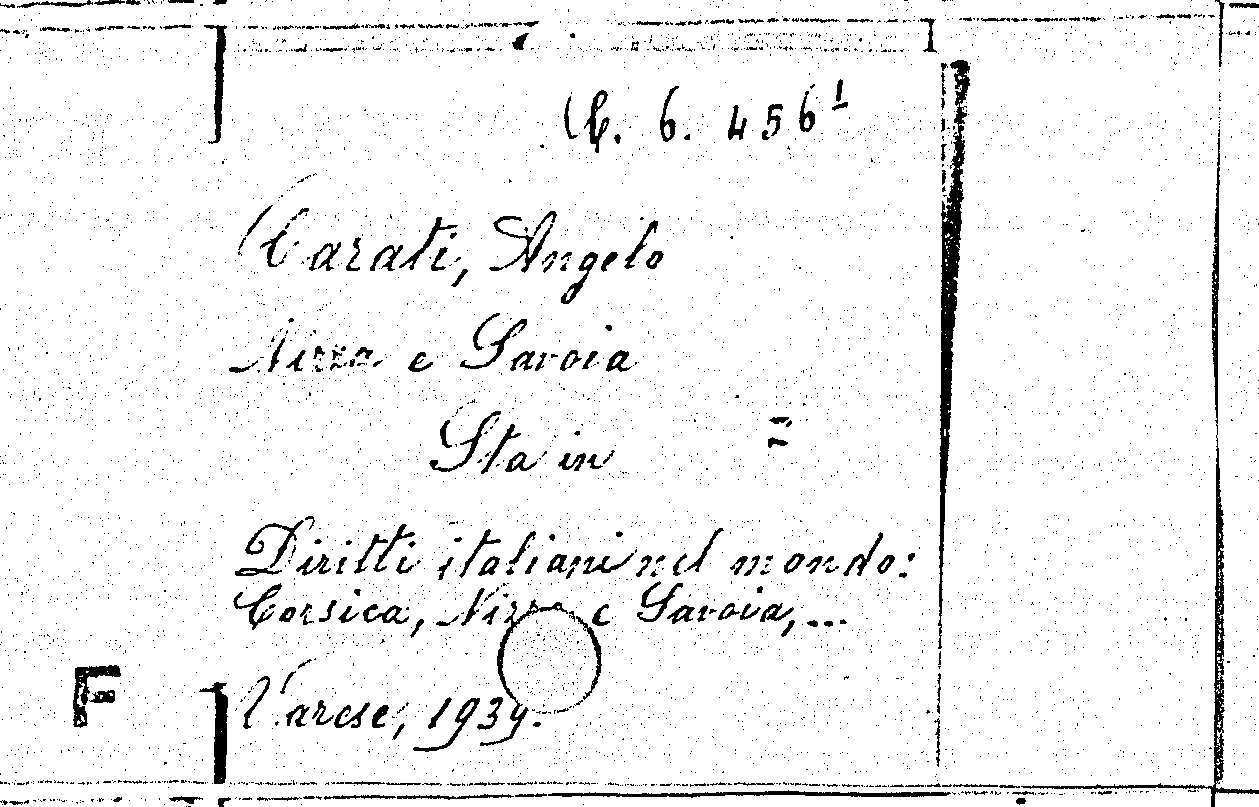 C. 6. 456¹
Carati, Angelo
Nizza e Savoia
Sta in =
Diritti italiani nel mondo:
Corsica, Nizza e Savoia, ...
F
Varese, 1939.